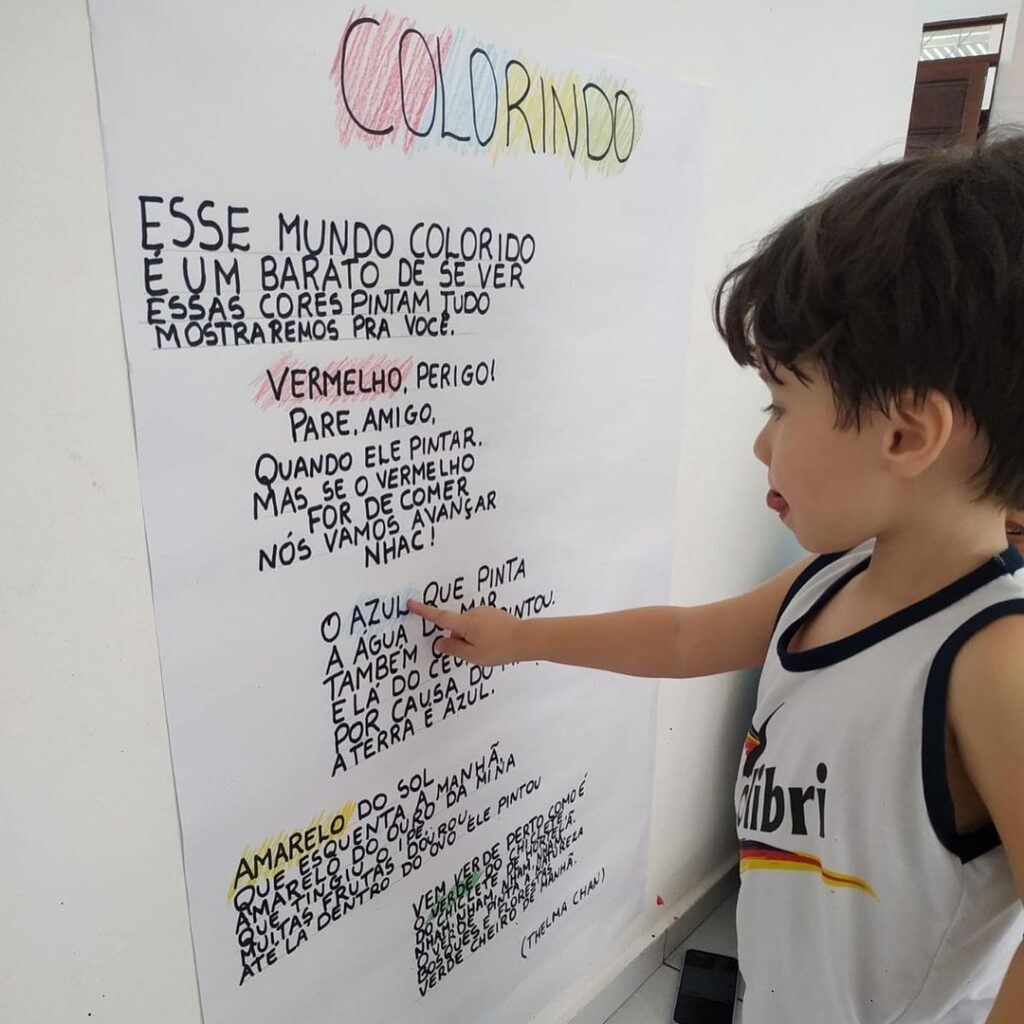 COLORINDO
ESSE MUNDO COLORIDO
É UM BARATO DE SE VER
ESSAS CORES PINTAM TUDO
MOSTRAREMOS PRA VOCÊ.
VERMELHO, PERIGO!
PARE, AMIGO,
QUANDO ELE PINTAR.
MAS SE O VERMELHO
FOR DE COMER
NÓS VAMOS AVANÇAR
NHAC!
O AZUL QUE PINTA
A ÁGUA DO MAR
TAMBÉM PINTOU.
E LÁ DO CÉU
POR CAUSA DO
A TERRA É AZUL.
AMARELO DO SOL
QUE ESQUENTA A MANHÃ,
AMARELO DO OURO DA MINA
QUE TINGIU, DOUROU
MUITAS FRUTAS ELE PINTOU
ATÉ LÁ DENTRO DO OVO
VEM VER DE PERTO COMO É
O VERDE DO
DO CHICLETE DE HORTELÃ.
NHAM, NHAM, NHAM
O VERDE PINTA A NATUREZA
BOSQUES E FLORESTAS
VERDE CHEIRO DE MANHÃ.
(THELMA CHAN)
libri